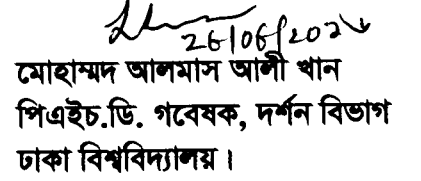 মোহাম্মদ আলমাস আলী খান
পিএইচ.ডি. গবেষক, দর্শন বিভাগ
ঢাকা বিশ্ববিদ্যালয়।